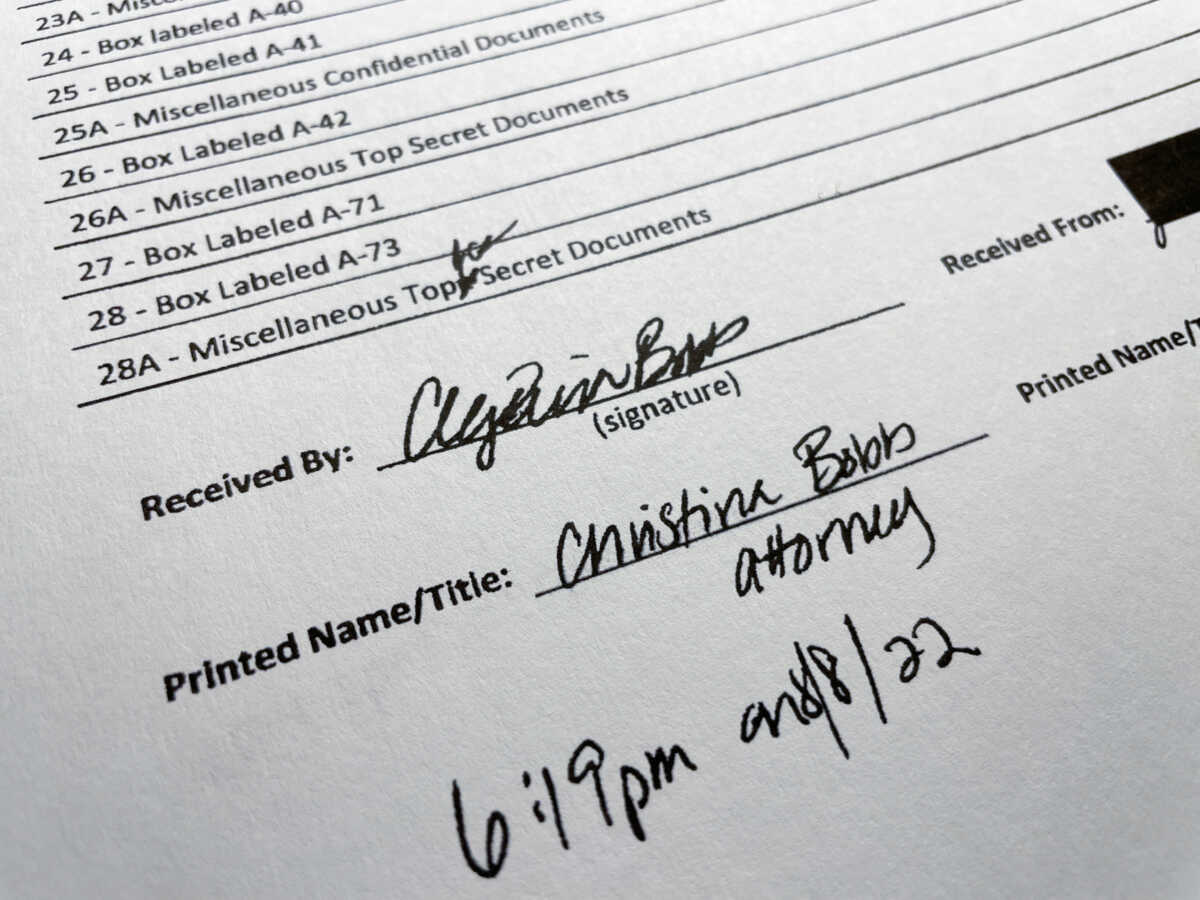 23A - Misc
24 - Box labeled A-40
25 - Box Labeled A-41
25A - Miscellaneous Confidential Documents
26 - Box Labeled A-42
26A - Miscellaneous Top Secret Documents
27 - Box Labeled A-71
28 - Box Labeled A-73
28A - Miscellaneous Top Secret Documents
Received By:
Bobb
(signature)
Received From:
Printed Name/Title: Christina Bobb
attorney
Printed Name/T
6:19pm on 8/8/22